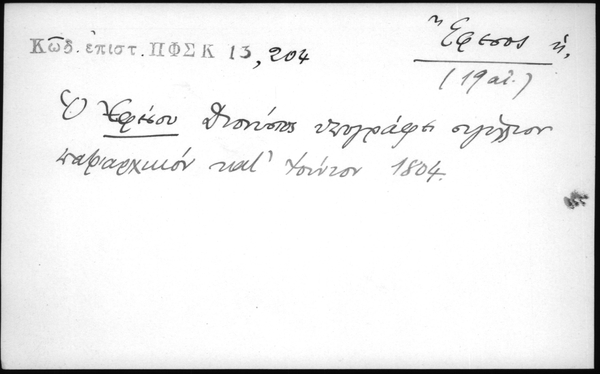 Κωδ. ἐπιστ. ΠΦΣΚ 13, 204
Ἔφεσος ἡ.
(19 αἰ.)
Ὁ Ἐφέσου Διονύσιος ὑπογράφει σιγίλλιον
πατριαρχικόν κατ' Ἰούνιον 1804.